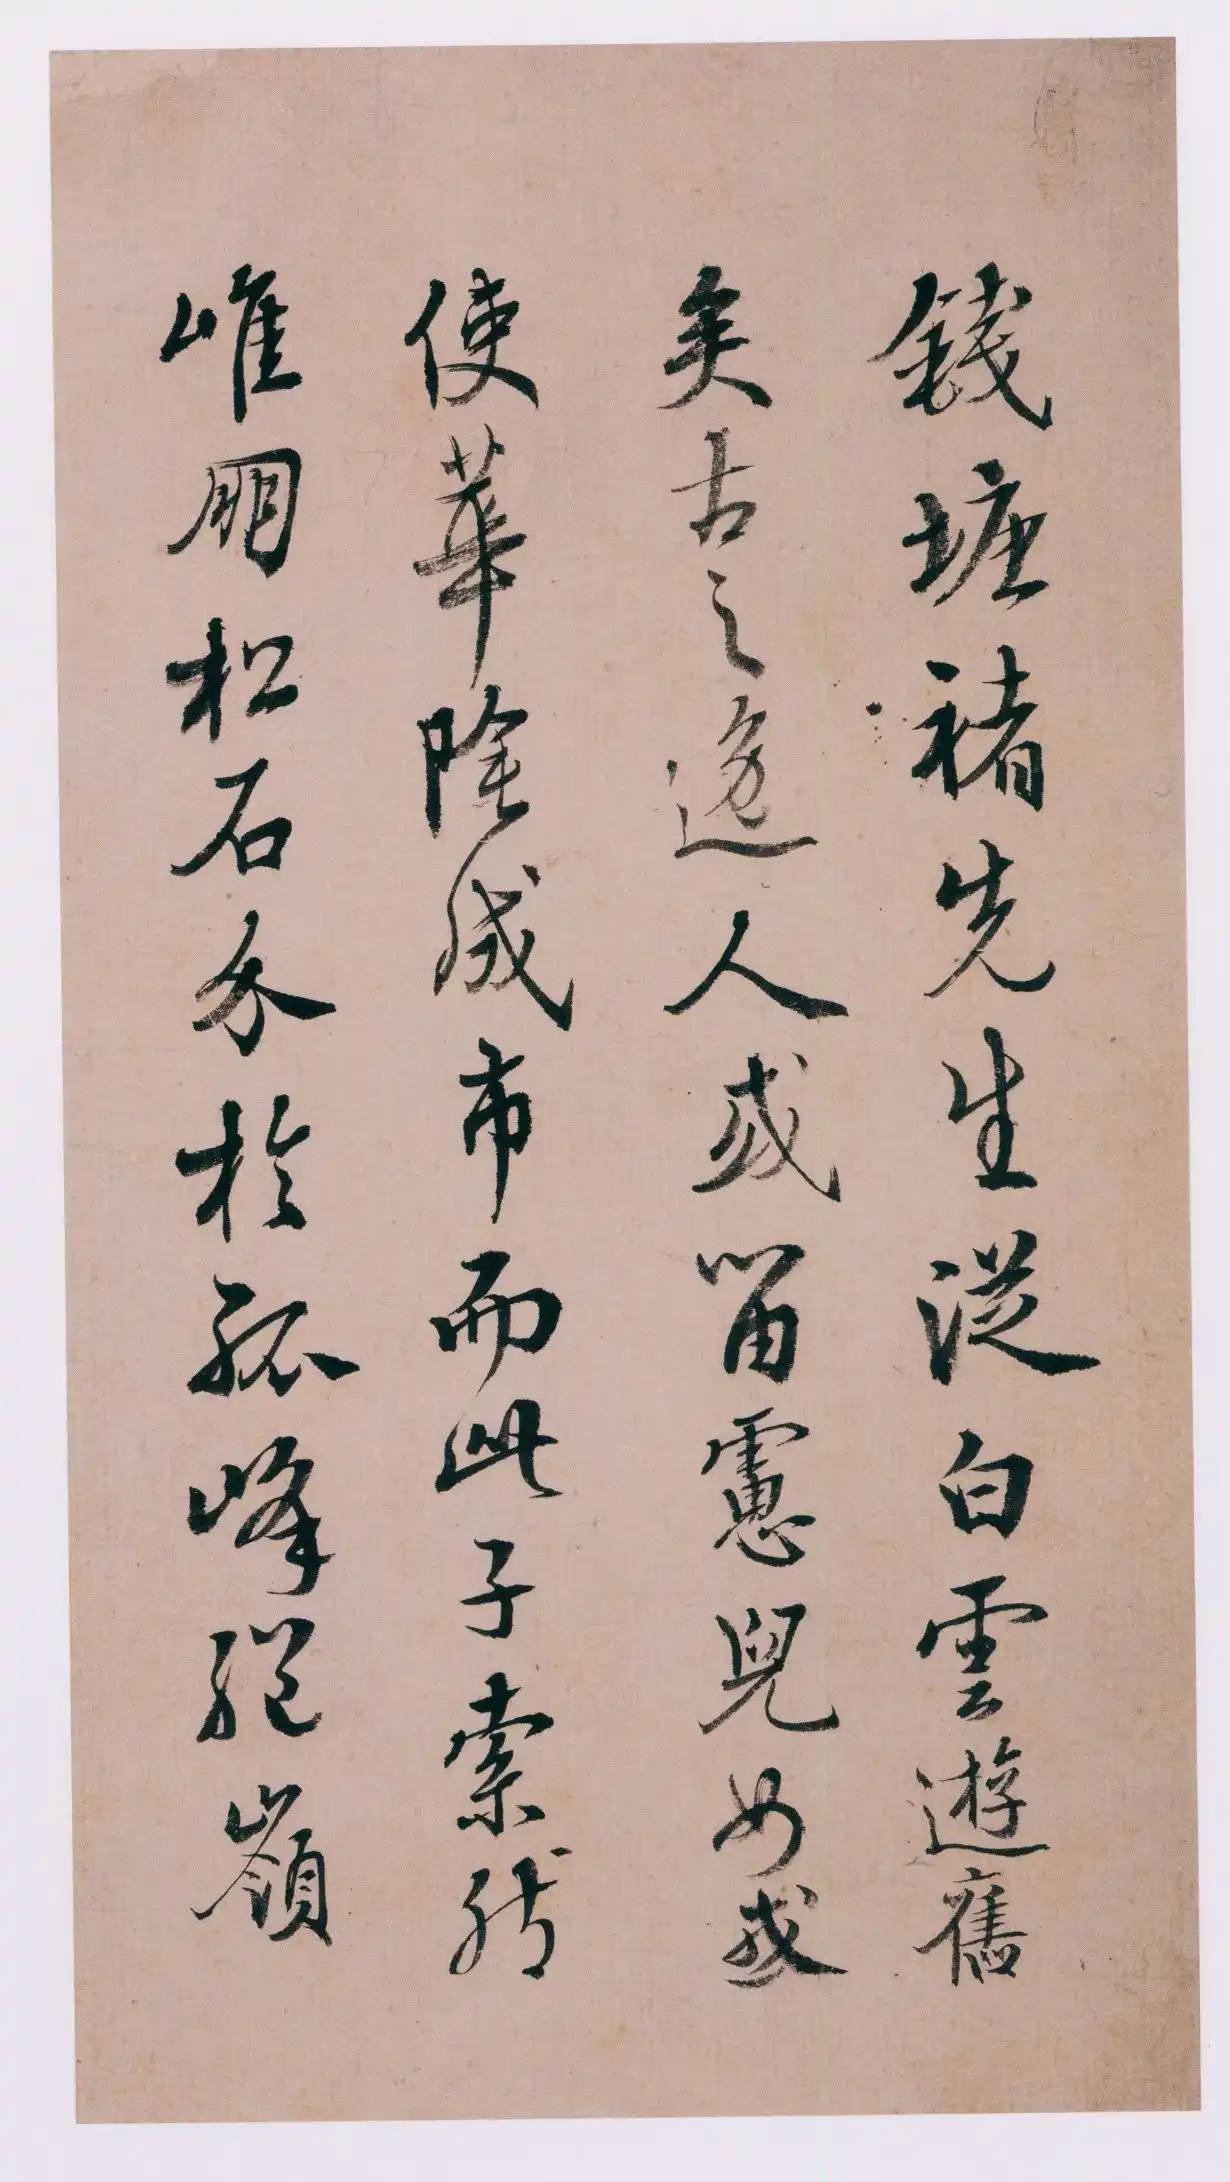 錢塘褚先生從白雲遊舊
矣古之逸人或留慮兒女或
使華陰成市而此子索然
唯朋松石介於孤峰絕嶺